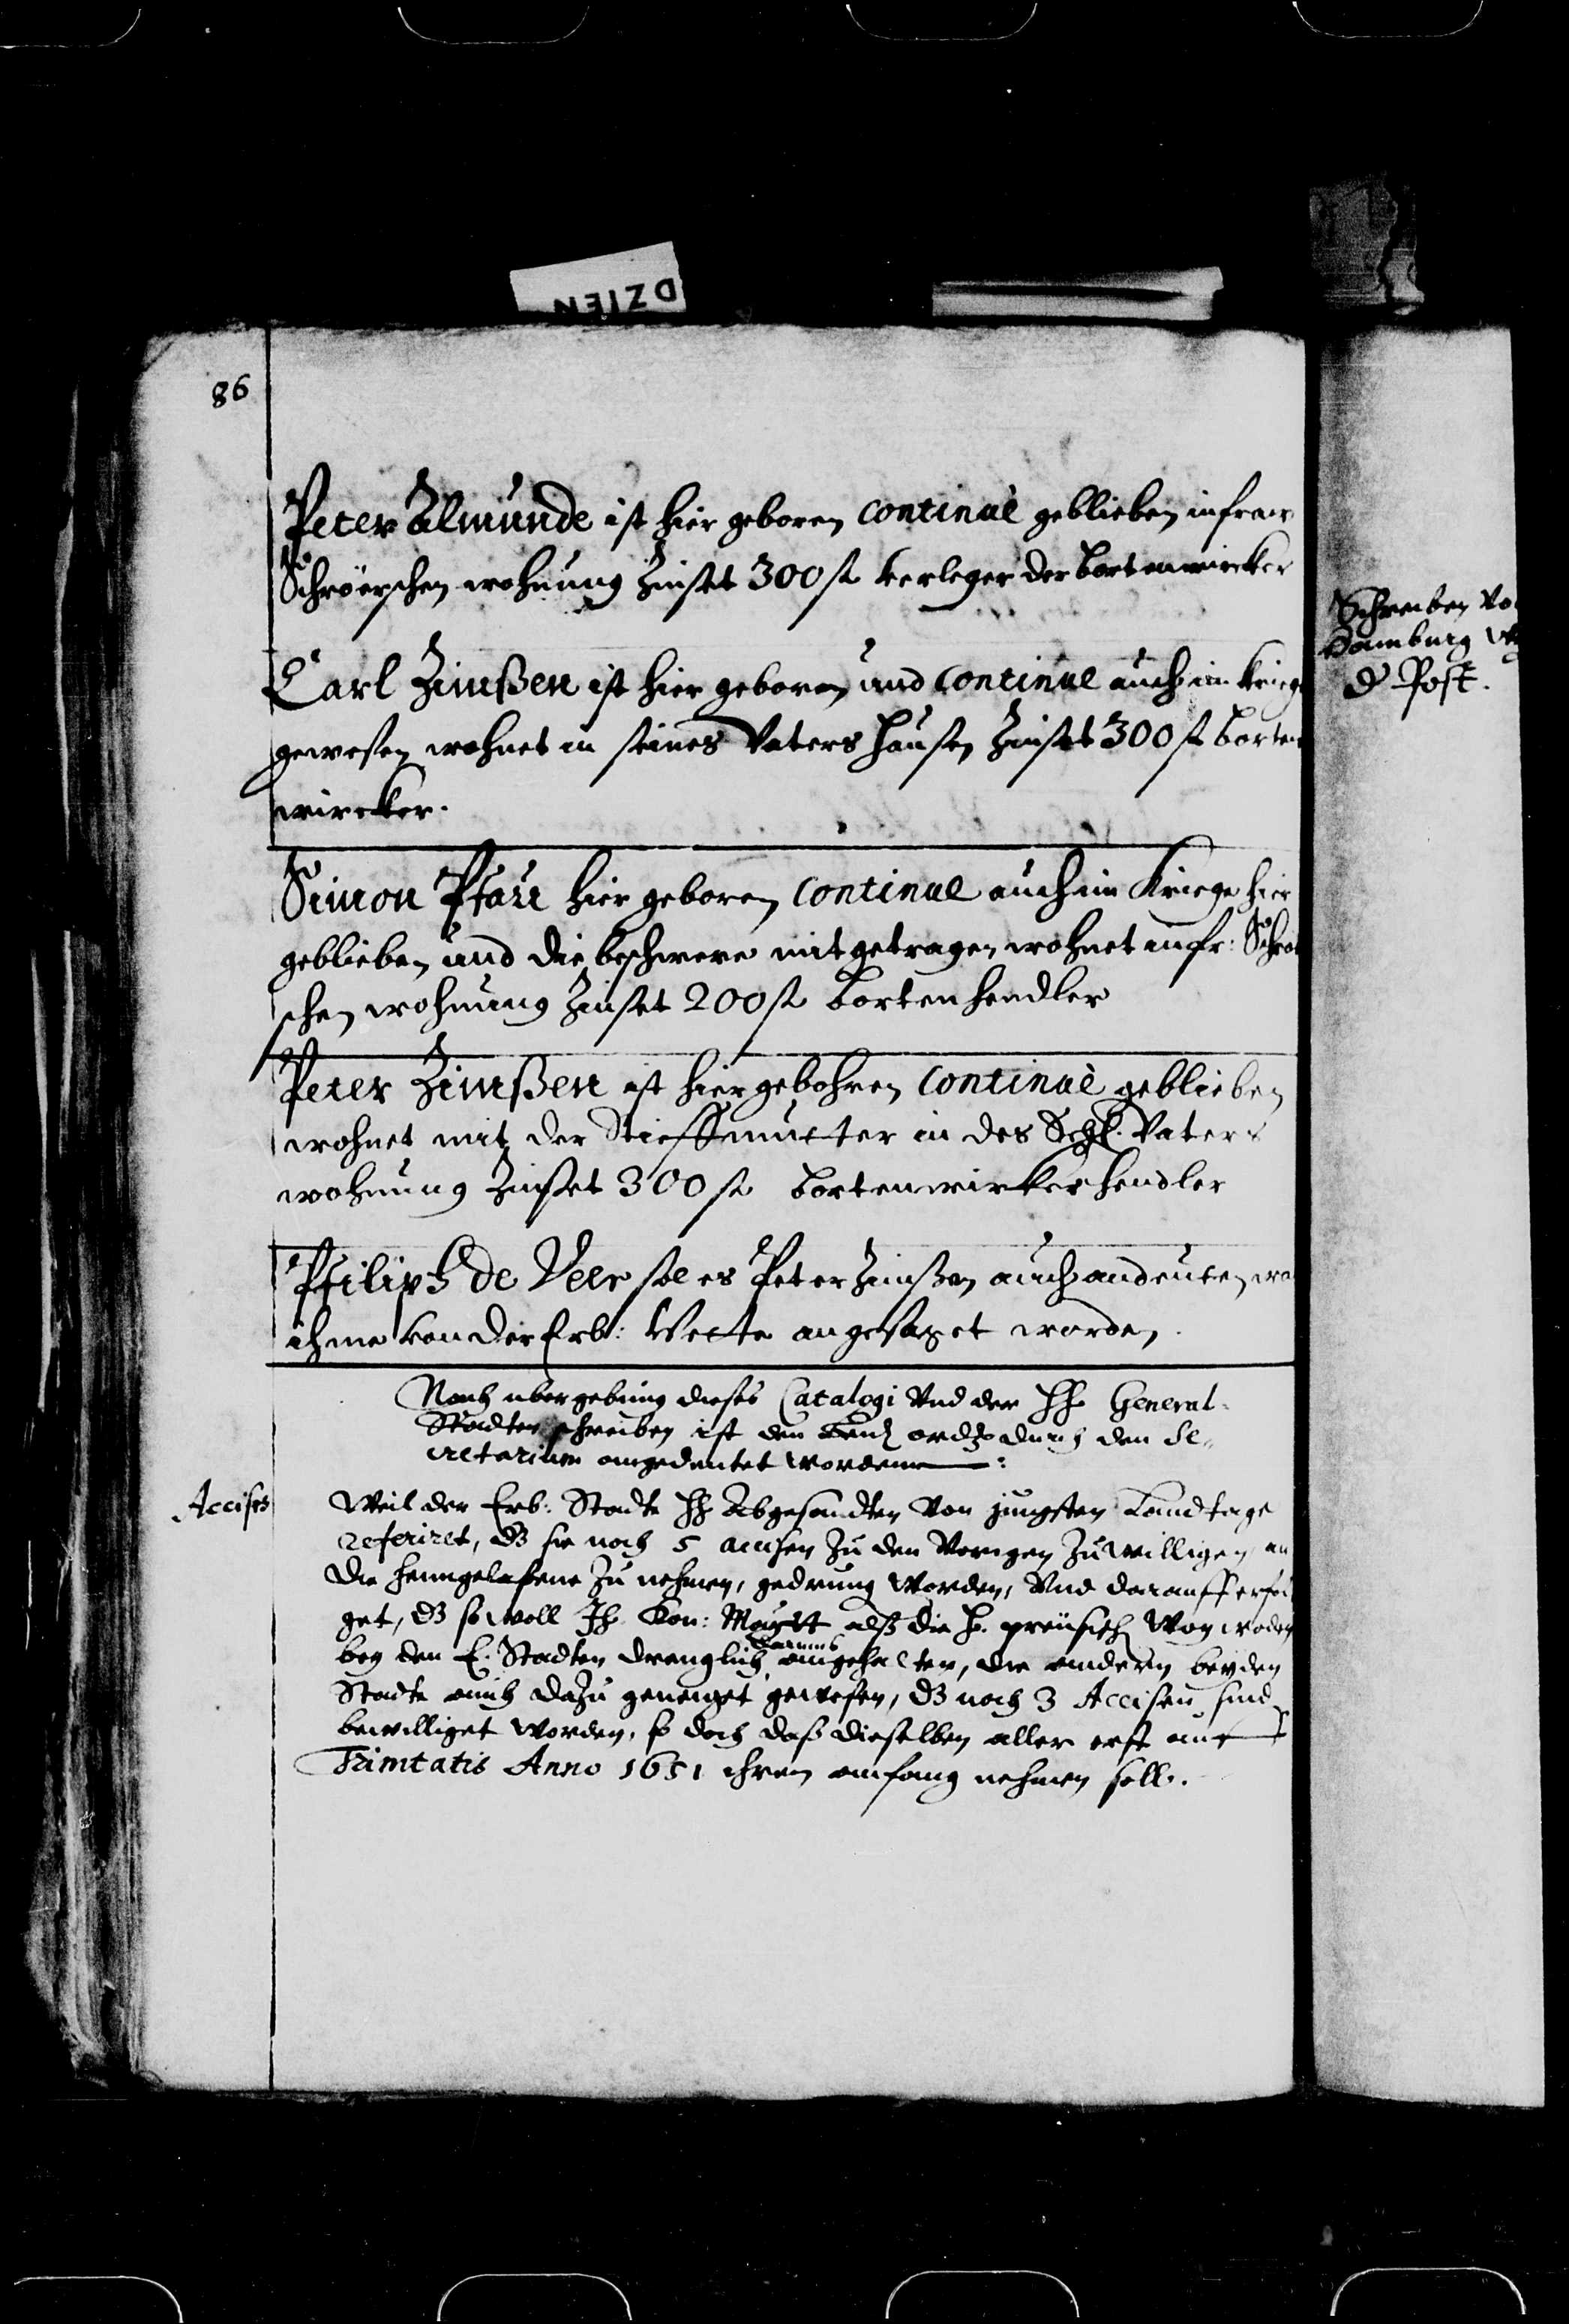 DZIEN
86
Peter Almünde ist hier geboren continuè geblieben in fraw
Schröerschen wohnung Zinset 300 fl verleger der bortenwircker
Carl Zimßen ist hier geboren und continue auch im Kriege
gewesen wohnet in seines Vaters Hause Zinset 300 fl borten
wircker.
Simon Pfarr hier geboren continue auch im Kriege hier
geblieben und die beschwere mit getragen wohnet in fr: Schrö
schen wohnung Zinset 200 fl borten hendler
Peter Zimßen ist hier gebohren continuè geblieben
wohnet mit der Stieffmutter in des Sehl. Vaters
wohnung Zinset 300 fl bortenwirker hendler
Philips de Veer sol es Peter Zimßen auch andeuten wa
ihme von der Erb: Wette angesaget worden.
Nach ubergebung dieses Catalogi Vnd der HH General
Stadten schreiben ist den durch den Se
cretarium angedeutet worden:
Accises
Weil der Erb: Stadte HH Abgesandten Von jungsten Landtage
referiret, dz sie noch 5 accisen Zu den Vorigen Zu willigen an
die heimgelasene Zu nehmen, gedrung worden, Vnd darauff erfol
get, dz so woll Ih Kon: Maytt alß die H. preusisch Woywoden
bey den E. Stadten drenglich darumb angehalten, die andern beyden
Stadte auch dazu geneiget gewesen, dz noch 3 Accisen sind
bewilliget worden, so doch daß dieselben aller erst auf
Trinitatis Anno 1651 ihren anfang nehmen soll.
Schreiben Vo
Hamburg
d Post.